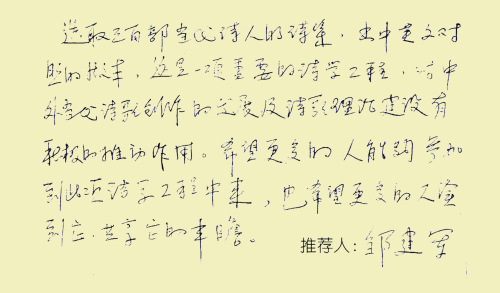 选取三百部当代诗人的诗集,出中英文对
照的版本,这是一项重要的诗学工程,对中
外当代诗歌创作的发展及诗歌理论建设有
积极的推动作用。希望更多的人能够参加
到此项诗学工程中来,也希望更多的人
到它,共享它的丰赡。
推荐人:邹建军